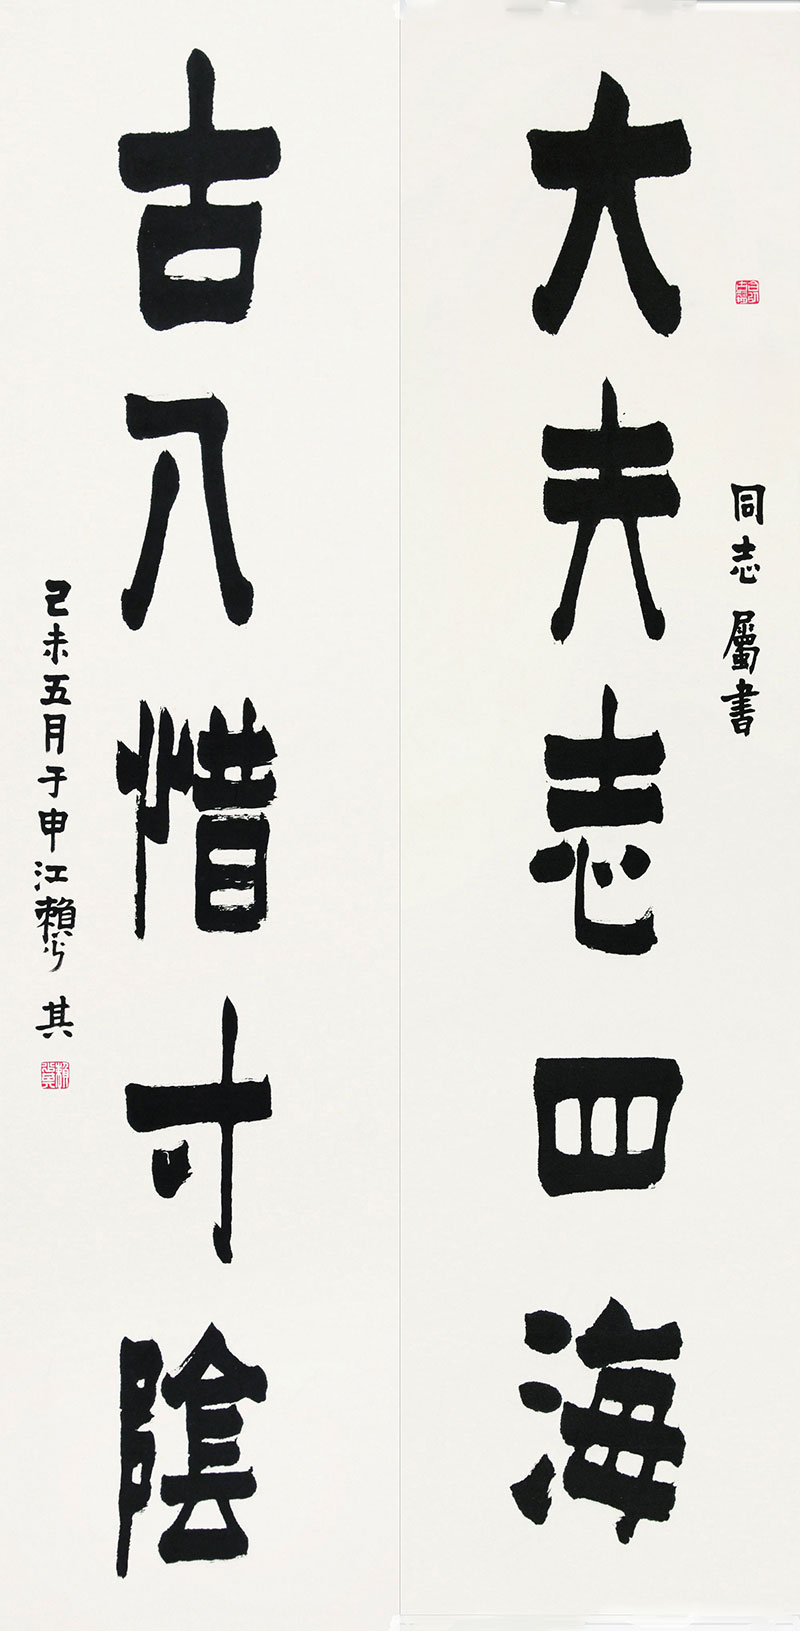 同志 屬書
大夫志四海
古人惜寸陰
己未五月于申江賴少其